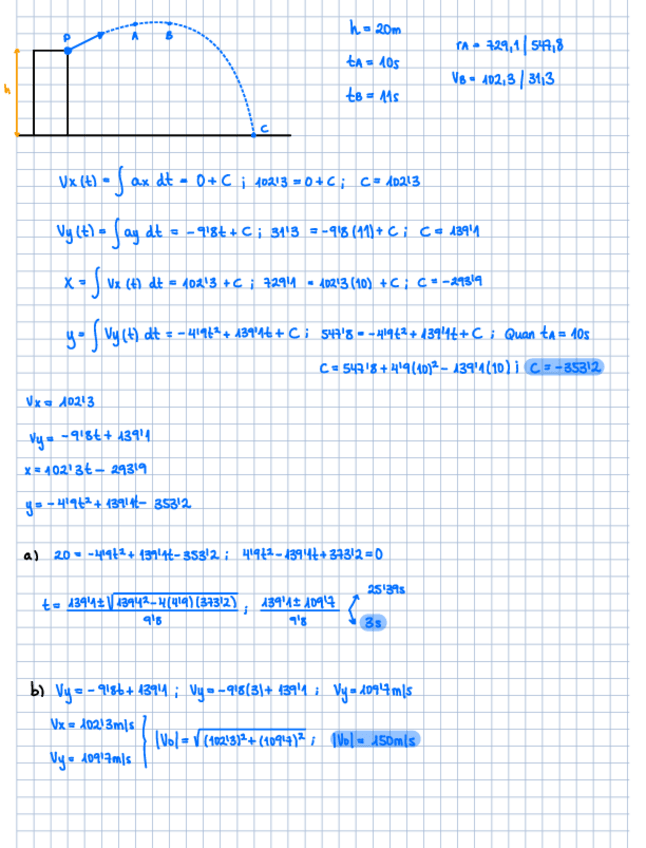 P
A
B
h
C
h = 20m
tA = 10s
tB = 11s
rA = 729,1 | 547,8
VB = 102,3 | 31,3
Vx (t) = ∫ ax dt = 0 + C ; 102'3 = 0 + C ; C = 102'3
Vy (t) = ∫ ay dt = - 9'8t + C ; 31'3 = -9'8 (11) + C ; C = 139'1
X = ∫ Vx (t) dt = 102'3 + C ; 729'1 = 102'3 (10) + C ; C = -293'9
y = ∫ Vy (t) dt = - 4'9t² + 139'1t + C ; 547'8 = -4'9t² + 139'1t + C ; Quan tA = 10s
C = 547'8 + 4'9 (10)² - 139'1 (10) ; C = -353'2
Vx = 102'3
Vy = -9'8t + 139'1
x = 102'3t - 293'9
y = - 4'9t² + 139'1t - 353'2
a) 20 = -4'9t² + 139'1t - 353'2 ; 4'9t² - 139'1t + 373'2 = 0
t = 139'1 ± √139'1² - 4 (4'9) (373'2) / 9'8 ; 139'1 ± 109'7 / 9'8
25'39s
3s
b) Vy = - 9'8t + 139'1 ; Vy = -9'8 (3) + 139'1 ; Vy = 109'7 m/s
Vx = 102'3 m/s
Vy = 109'7 m/s
|V0| = √(102'3)² + (109'7)² ; |V0| = 150 m/s